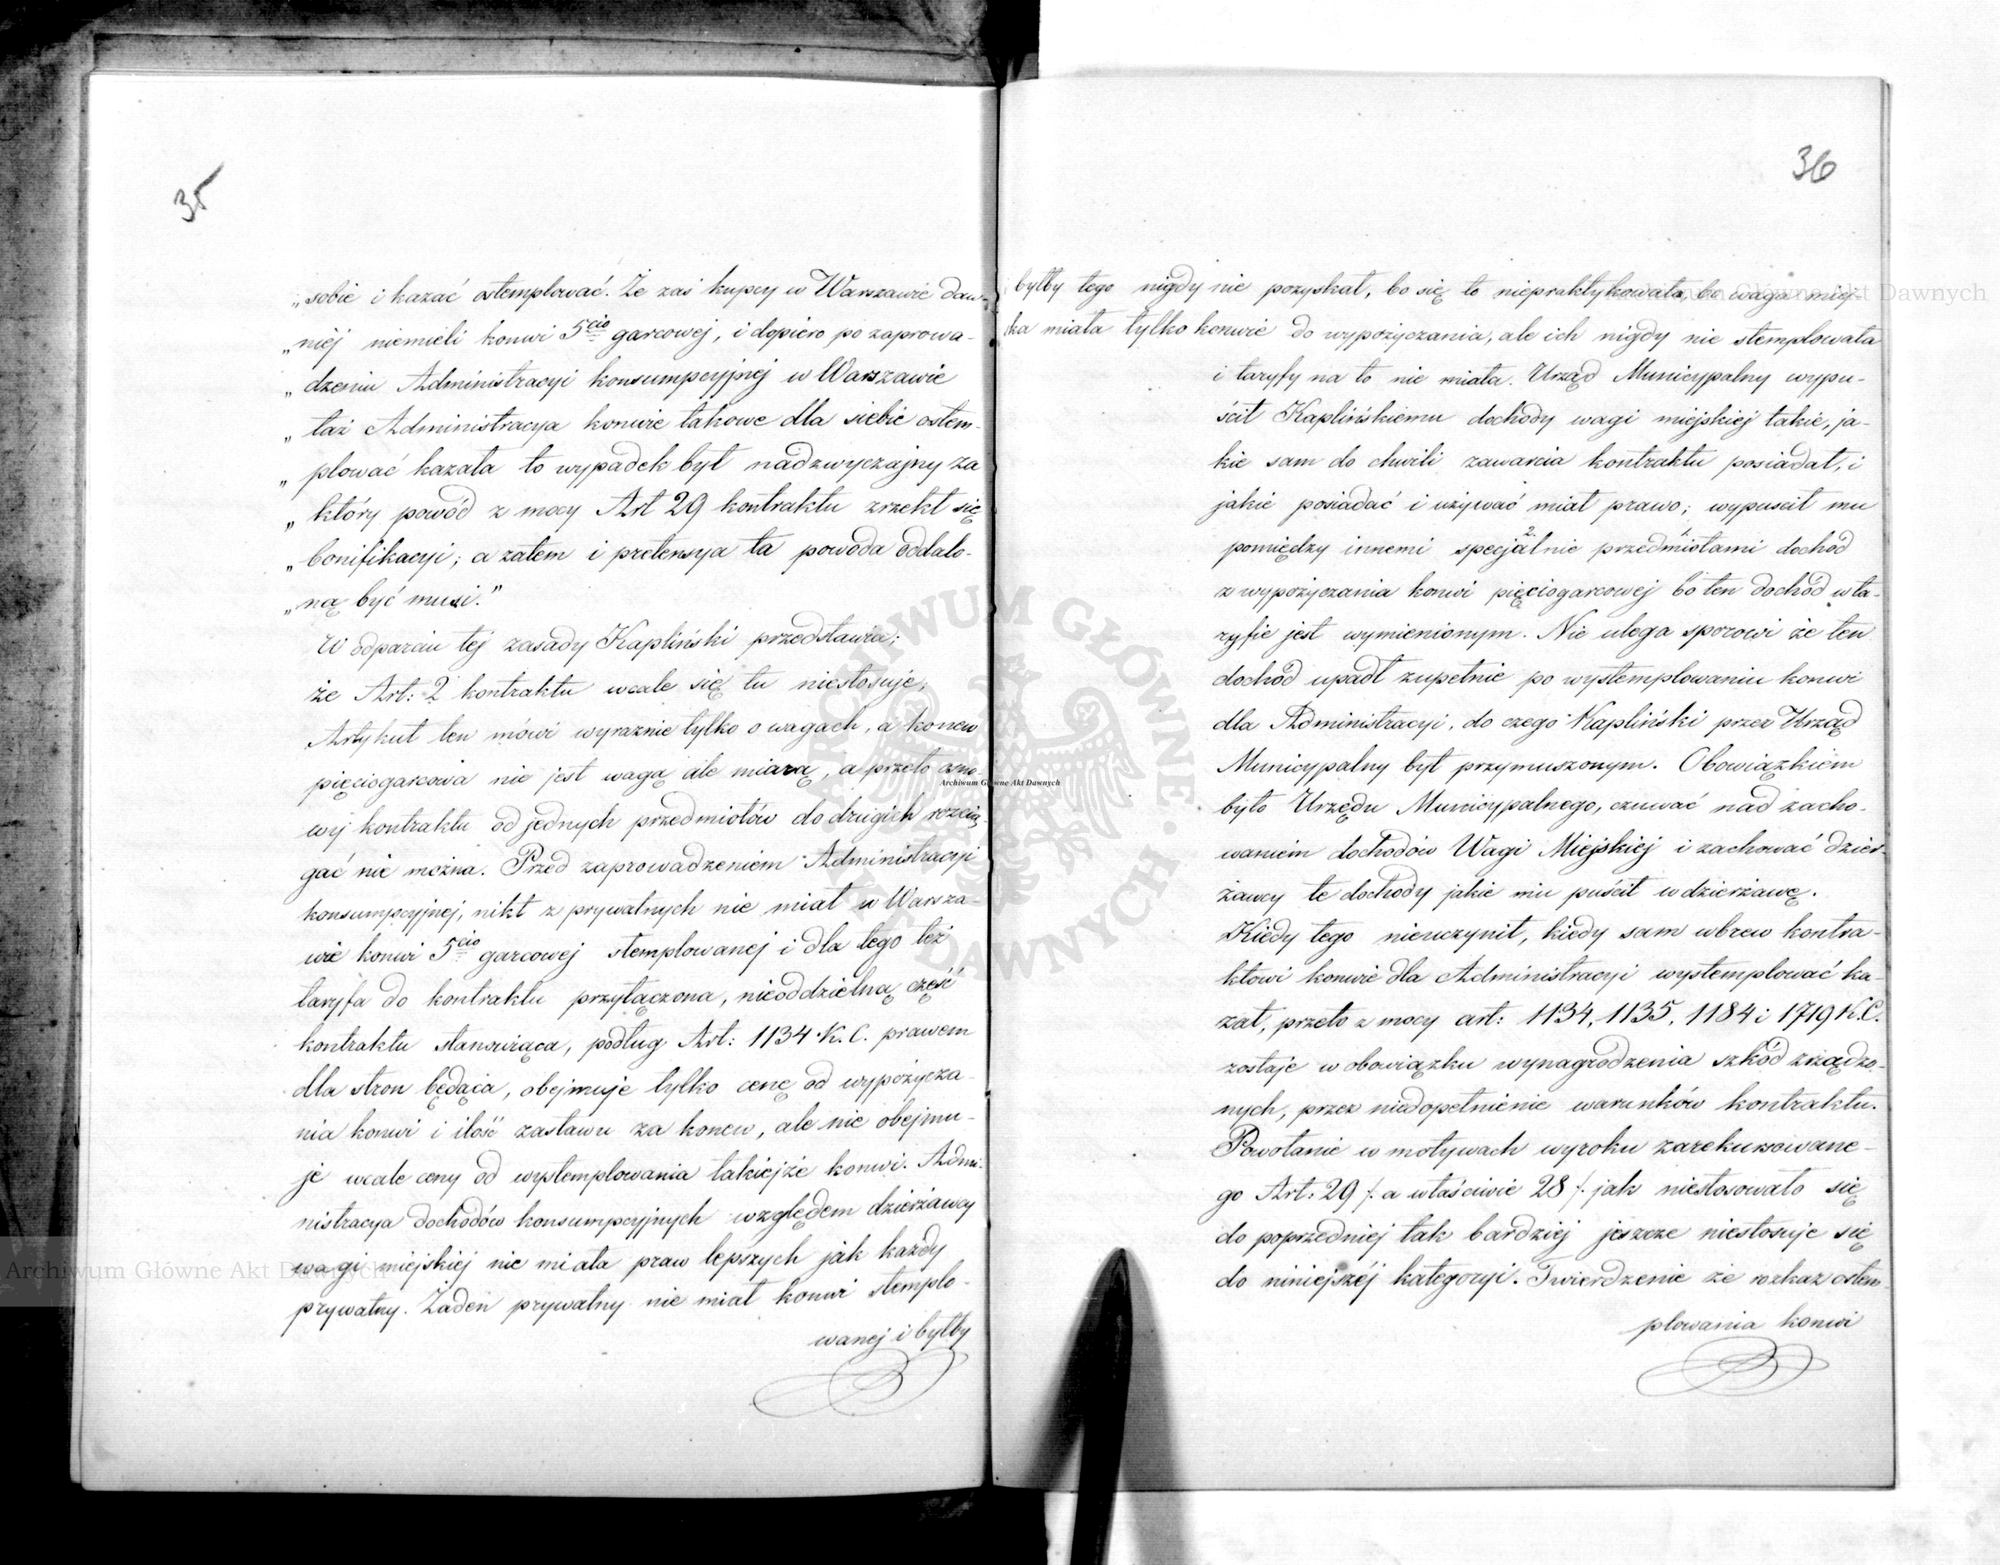 35
„sobie i kazać ostemplować. Że zaś kupcy w Warszawie daw-
„niéj niemieli konwi 5cio garcowej, i dopiero po zaprowa-
„dzeniu Administracyi konsumpcyjnéj w Warszawie
„taż Administracya konwie takowe dla siebie ostem-
„plować kazała to wypadek był nadzwyczajny za
„który powód z mocy Art 29 kontraktu zrzekł się
„bonifikacyi; a zatem i pretensya ta powoda oddalo-
„ną być musi."
W odparciu téj zasady Kapliński przedstawia;
że Art: 2 kontraktu wcale się tu niestosuje,
Artykuł ten mówi wyraznie tylko o wagach, a konew
pięciogarcowa nie jest wagą ale miarą, a przeto osno-
wy kontraktu od jednych przedmiotów do drugich rozcią-
gać nie można. Przed zaprowadzeniem Administracyi
konsumpcyjnej, nikt z prywatnych nie miał w Warsza-
wie konwi 5cio garcowej stemplowanej i dla tego też
taryfa do kontraktu przyłączona, nieoddzielną część
kontraktu stanowiąca, podług Art: 1134 K. C. prawem
dla stron będąca, obejmuje tylko cenę od wypożycza-
nia konwi i ilość zastawu za konew, ale nie obejmu-
je wcale ceny od wystemplowania takiejże konwi. Admi-
nistracya dochodów konsumpcyjnych względem dzierżawcy
wagi miejskiej nie miała praw lepszych jak każdy
prywatny. Żaden prywatny nie miał konwi stemplo-
wanej i byłby
36
byłby tego nigdy nie pozyskał, bo się to niepraktykowało, bo waga miej-
ska miała tylko konwie do wypożyczania, ale ich nigdy nie stemplowała
i taryfy na to nie miała. Urząd Municypalny wypu-
ścił Kaplińskiemu dochody wagi miejskiéj takie, ja-
kie sam do chwili zawarcia kontraktu posiadał, i
jakie posiadać i używać miał prawo; wypuscił mu
pomiędzy innemi specjalnie przedmiotami dochód
z wypożyczania konwi pięciogarcowej bo ten dochód w ta-
ryfie jest wymienionym. Nie ulega sporowi że ten
dochód upadł zupełnie po wystemplowaniu konwi
dla Administracyi, do czego Kapliński przez Urząd
Municypalny był przymuszonym. Obowiązkiem
było Urzędu Municypalnego, czuwać nad zacho-
waniem dochodów Wagi Miejskiéj i zachować dzier-
żawcy te dochody jakie mu puścił w dzierżawę.
Kiedy tego nieuczynił, kiedy sam wbrew kontra-
ktowi konwie dla Administracyi wystemplować ka-
zał, przeto z mocy art: 1134, 1135, 1184 i 1719 K.C.
zostaje w obowiązku wynagrodzenia szkód zrządzo-
nych, przez niedopełnienie warunków kontraktu.
Powołanie w motywach wyroku zarekursowane-
go Art: 29 /: a właściwie 28 /: jak niestosowało się
do poprzedniej tak bardziej jeszcze niestosuje się
do niniejszéj kategoryi. Twierdzenie że rozkaz ostem-
plowania konwi
Archiwum Główne Akt Dawnych
Archiwum Główne Akt Dawnych
Archiwum Główne Akt Dawnych
ARCHIWUM GŁÓWNE AKT DAWNYCH